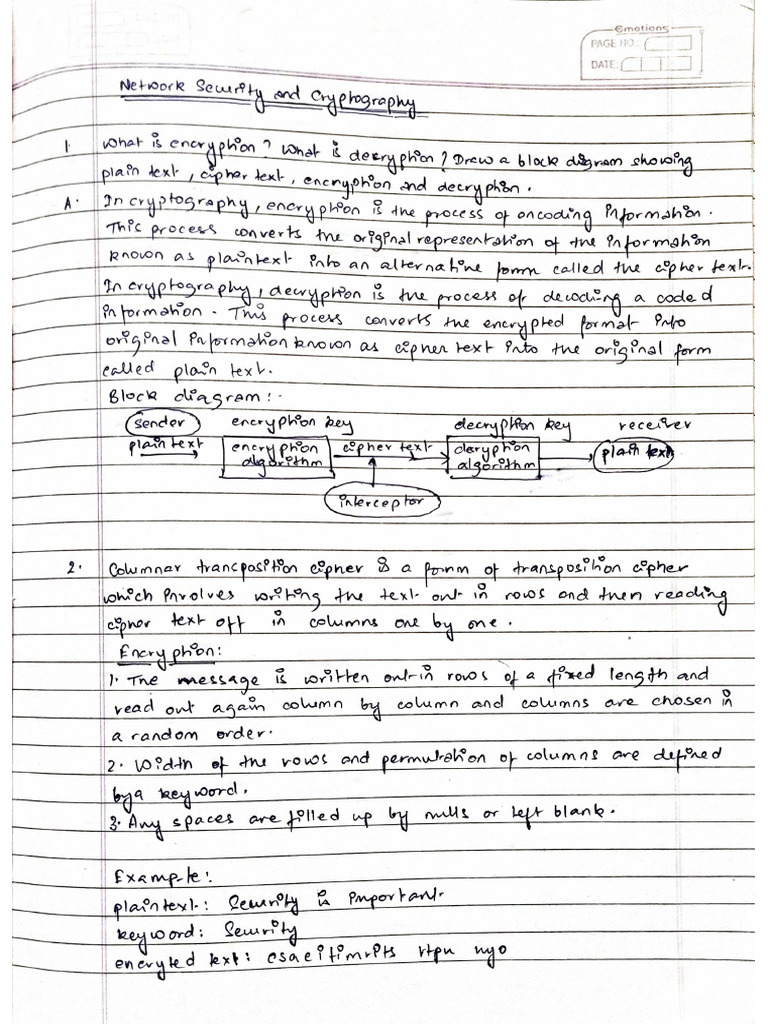 Emotions
PAGE NO.
DATE:
Network Security and Cryptography
1. What is encryption? What is decryption? Draw a block diagram showing
plain text, cipher text, encryption and decryption.
A. In cryptography, encryption is the process of encoding information.
This process converts the original representation of the information
known as plaintext into an alternative form called the cipher text.
In cryptography, decryption is the process of decoding a coded
information. This process converts the encrypted format into
original information known as cipher text into the original form
called plain text.
Block diagram:-
sender encryption key decryption key receiver
plain text encryption algorithm cipher text decryption algorithm plain text
interceptor
2. Columnar trancposition cipher is a form of transposition cipher
which involves writing the text out in rows and then reading
cipher text off in columns one by one.
Encryption:
1. The message is written out in rows of a fixed length and
read out again column by column and columns are chosen in
a random order.
2. Width of the rows and permutation of columns are defined
by a keyword.
3. Any spaces are filled up by nulls or left blank.
Example:
plaintext: Security is important
keyword: Security
encryted text: csaeitimrits rtpu nyo